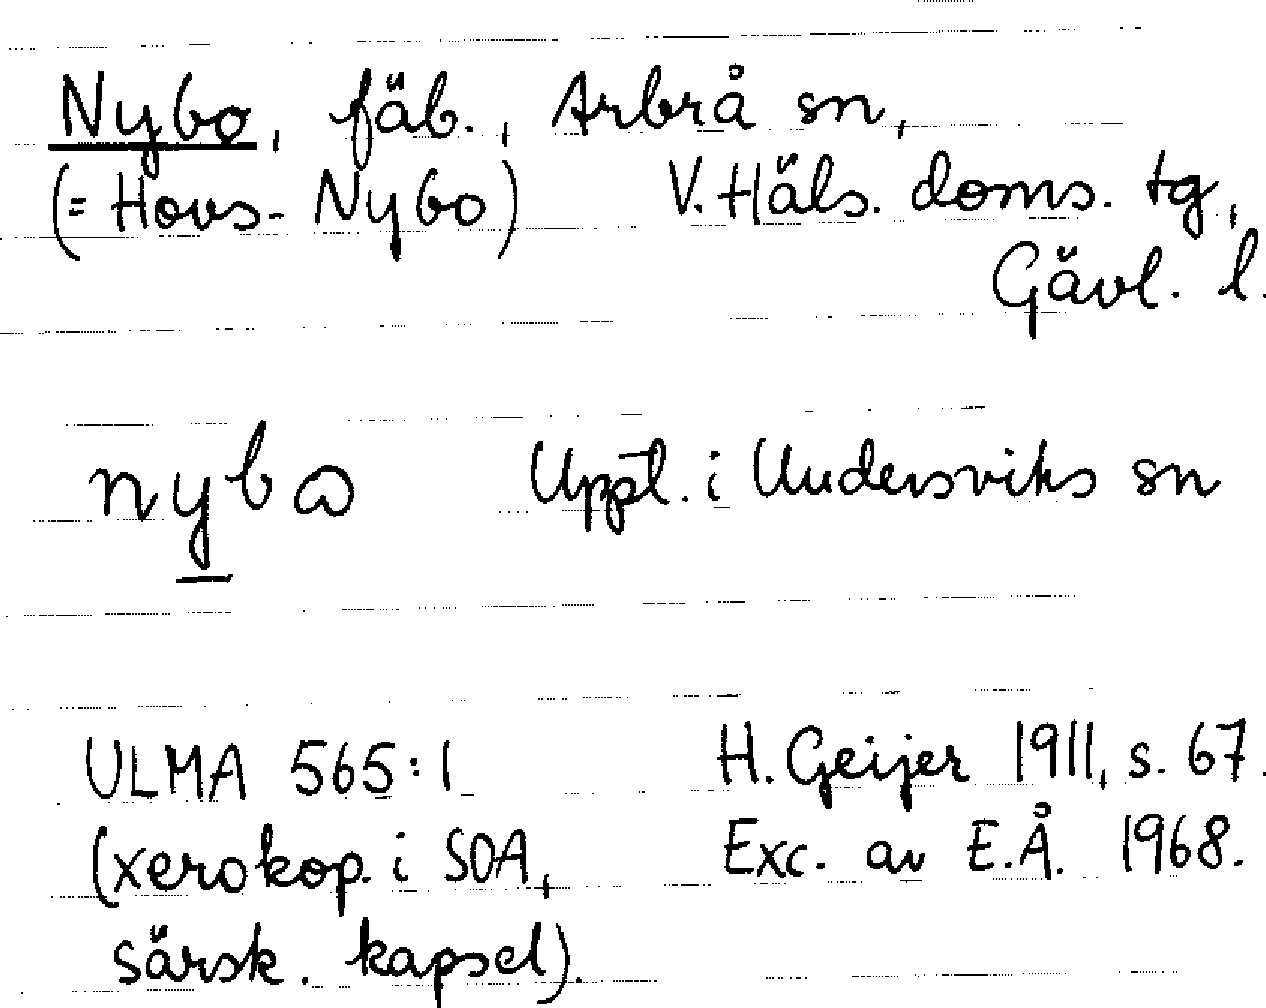 Nybo, fäb., Arbrå sn,
(= Hovs- Nybo) V. Häls. doms. tg,
Gävl. l.
nybɷ Uppt. i Undersviks sn
ULMA 565:1 H. Geijer 1911, s. 67.
(xerokop. i SOA, Exc. av E.Å. 1968.
särsk. kapsel).